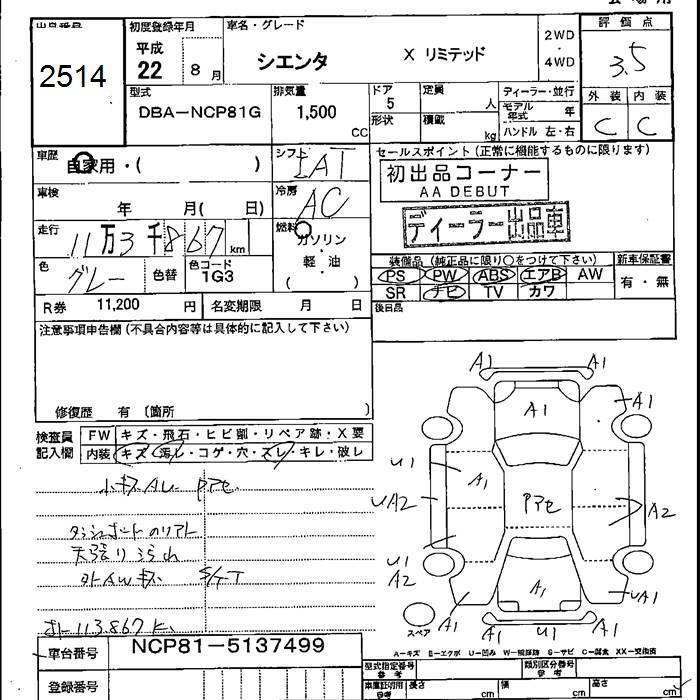 出品番号 2514
初度登録年月 平成 22 8 月
車名・グレード シエンタ X リミテッド
2WD
・
4WD
評価点 3.5
型式 DBA-NCP81G
排気量 1,500 CC
ドア 5
形状
定員 人
積載 kg
ディーラー・並行
モデル年式 年
ハンドル 左・右
外装 内装
C C
車歴 自家用・( )
シフト IAT
セールスポイント(正常に機能するものに限ります)
初出品コーナー
AA DEBUT
ディーラー出品車
車検 年 月( 日)
冷房 AC
走行 11万3千867 km
燃料 ガソリン
・
軽・油
( )
色 グレー 色替 色コード 1G3
装備品(純正品に限り○をつけて下さい) 新車保証書
PS PW ABS エアB AW 有・無
SR ナビ TV カワ
R券 11,200 円 名変期限 月 日
後日品
注意事項申告欄(不具合内容等は具体的に記入して下さい)
修復歴 有 〔箇所 〕
検査員記入欄
FW キズ・飛石・ヒビ割・リペア跡・X要
内装 キズ・汚レ・コゲ・穴・スレ・キレ・破レ
A1 A1
A1 A1
U1 A1
UA2 A2
U1
A2
A1 A1 UA1
A1 U1 A1
スペア
A-キズ E-エクボ U-凹み
車台番号 NCP81-5137499
登録番号
型式指定番号 参考
類別区分番号 参考
車庫証明用 参考 長さ cm 幅 cm 高さ cm